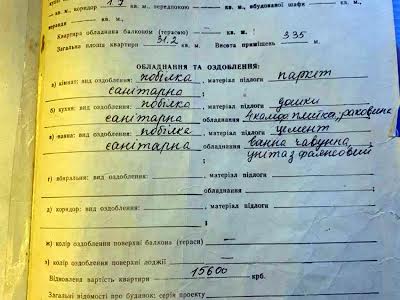 — кв. м., коридор 1.9 кв. м., передпокою — кв. м., вбудованої шафи
кв. м., — кв. м.
Квартира обладнана балконом (терасою) — кв. м.
Загальна площа квартири 31.2 кв. м. Висота приміщень 335 м.
ОБЛАДНАННЯ ТА ОЗДОБЛЕННЯ:
а) кімнат: вид оздоблення: побілка, матеріал підлоги паркіт
санітарна ;
б) кухні: вид оздоблення: побілка, матеріал підлоги дошки
санітарна обладнання 4 камфо плитка, раковина
в) ванна: вид оздоблення: побілка, матеріал підлоги цемент
санітарна обладнання ванна чавунна,
; унітаз фаянсовий
г) вбиральня: вид оздоблення: , матеріал підлоги
обладнання ;
д) коридор: вид оздоблення: , матеріал підлоги
;
ж) колір оздоблення поверхні балкона (тераси) —
з) колір оздоблення поверхні лоджії —
Відновлена вартість квартири 15600 крб.
Загальні відомості про будинок: серія проекту